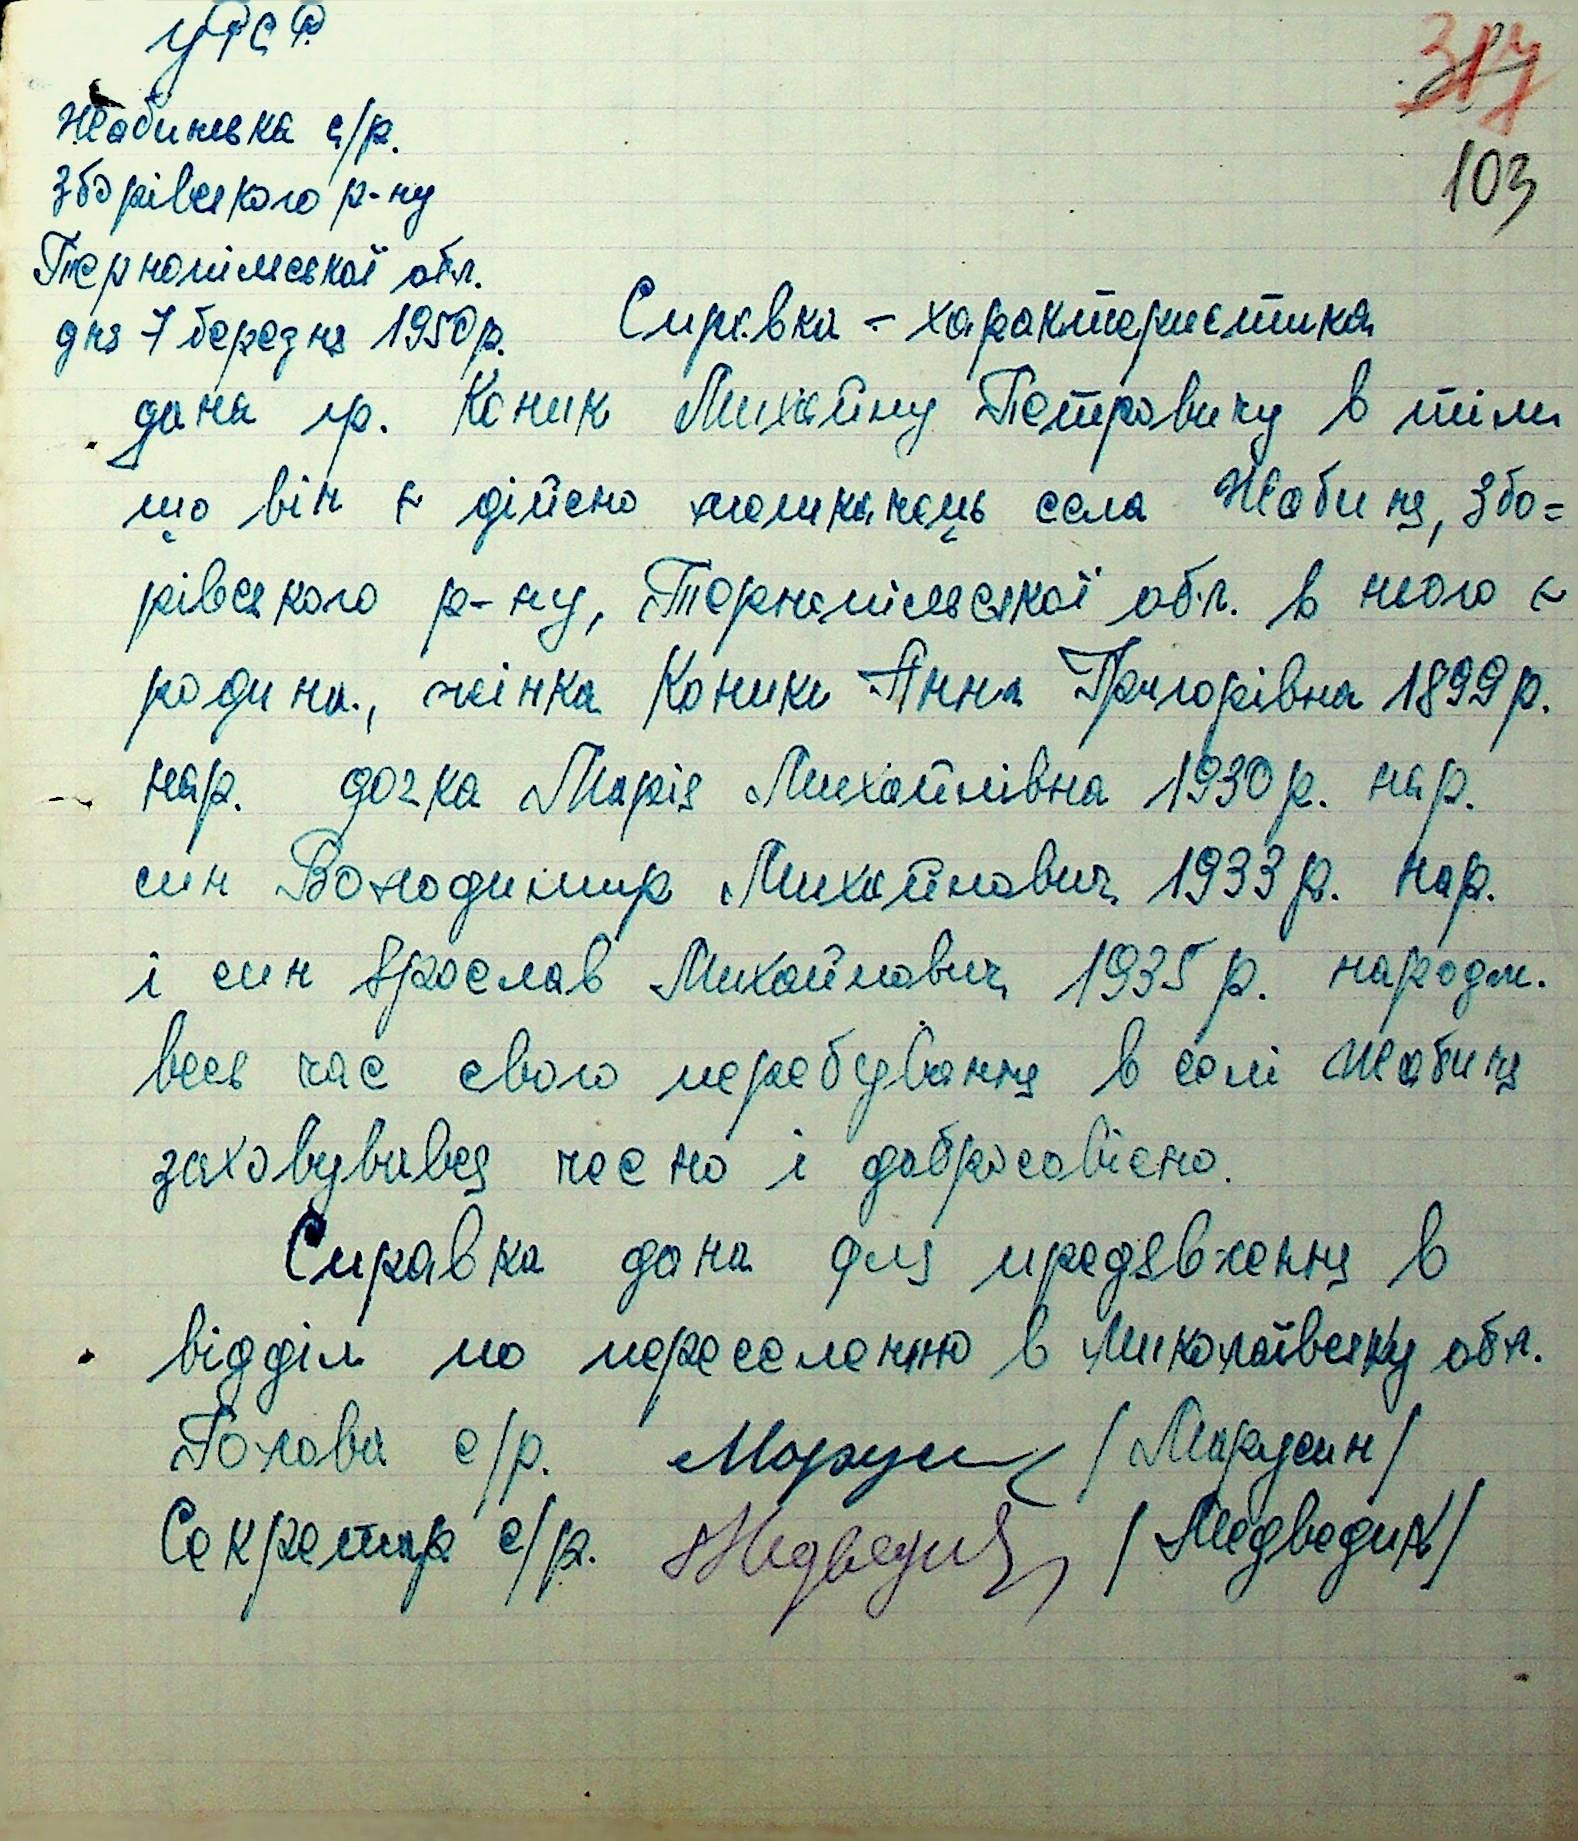 УРСР
Жабинська с/р.
Зборівського р-ну
Тернопільської обл.
дня 7 березня 1950р.
103
Справка - характеристика
дана гр. Коник Михайлу Петровичу в тім
що він є дійсно мешканець села Жабиня, Збо=
рівського р-ну, Тернопільської обл. в нього є
родина, жінка Коник Анна Григорівна 1899р.
нар. дочка Марія Михайлівна 1930р. нар.
син Володимир Михайлович 1933р. нар.
і син Ярослав Михайлович 1935 р. народж.
весь час свого перебування в селі Жабиня
заховувався чесно і добросовісно.
Справка дана для предявлення в
відділ по переселенню в Миколаївську обл.
Голова с/р. /Марусин/
Секретар с/р. /Медведик/